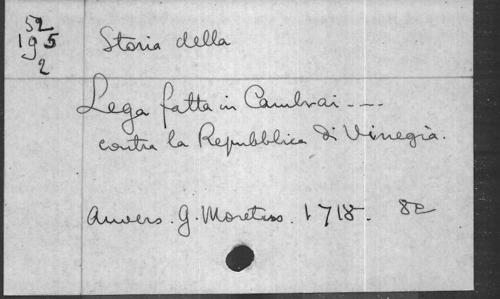 52
195
9
2
Storia della
Lega fatta in Cambrai ---
contra la Repubblica di Vinegia.
Anvers. G. Moretus. 1718. 8º